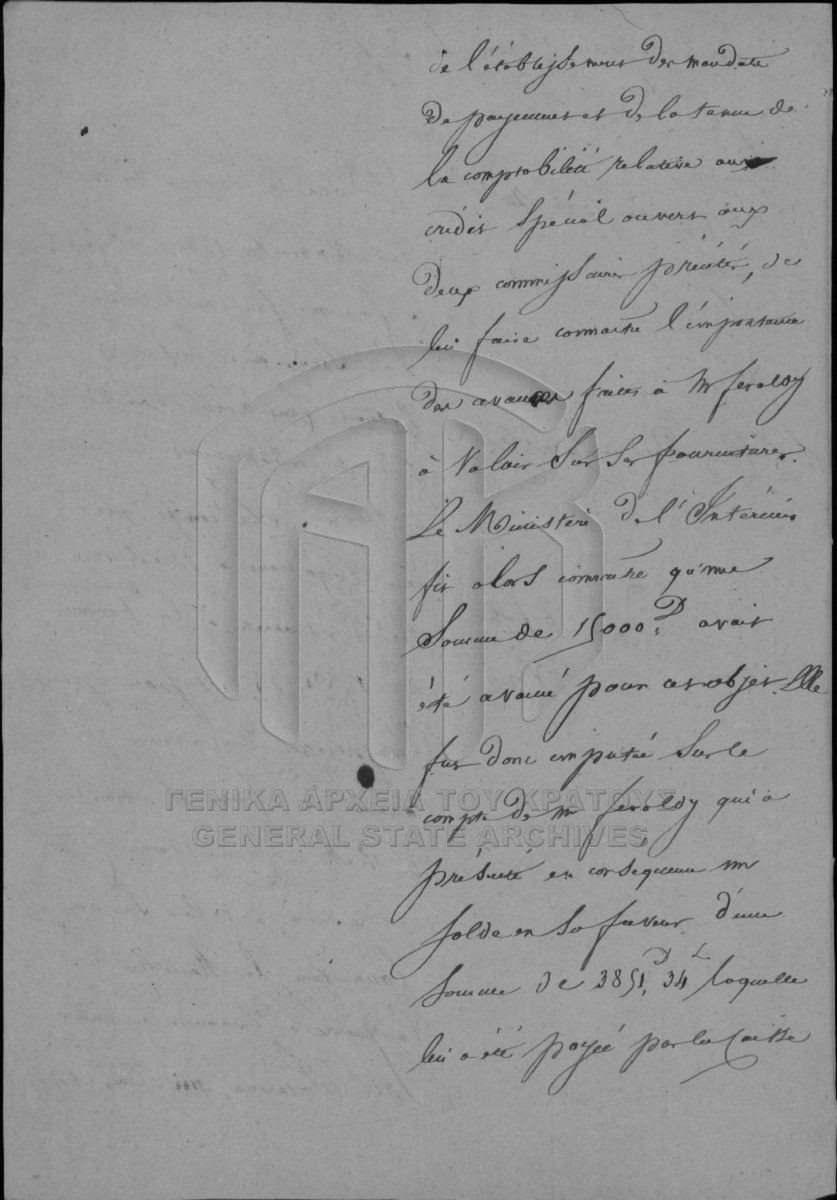 de l'établissement des mandats
de payement et de la tenue de
la comptabilité relative aux
crédit spécial ouvert aux
deux commissaires précités, de
lui faire connaitre l'importance
des avances faites à Mr feroldy
à Valoir Sur Ses fournitures.
Le Ministère de l'Intérieur
fit alors connaitre qu'une
Somme de 15000 D. avait
été avancé pour cet objet. Elle
fut donc imputée Sur le
compte de Mr feroldy qui a
présenté en consequence un
solde en Sa faveur d'une
Somme de 3851 D. 34 L laquelle
lui a été payée par la Caisse
ΓΕΝΙΚΑ ΑΡΧΕΙΑ ΤΟΥ ΚΡΑΤΟΥΣ
GENERAL STATE ARCHIVES